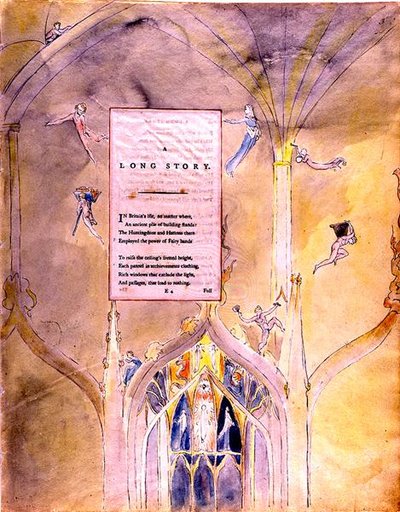 A
LONG STORY.
IN Britain's isle, no matter where,
An ancient pile of building stands
The Huntingdons and Hattons there
Employed the power of Fairy hands
To raise the ceiling's fretted height,
Each pannel in achievements clothing,
Rich windows that exclude the light,
And passages, that lead to nothing.
E 4 Full